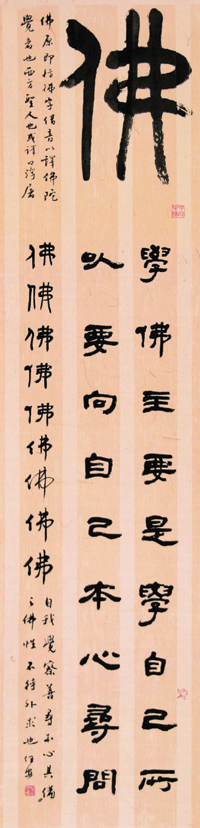 佛
佛原即彷彿字借音以譯佛陀
覺者也西方聖人也或譯曰浮屠
學佛至要是學自己所
以要向自己本心尋問
佛佛佛佛佛佛佛佛佛
自我覺察善尋本心具備
之佛性不待外求也